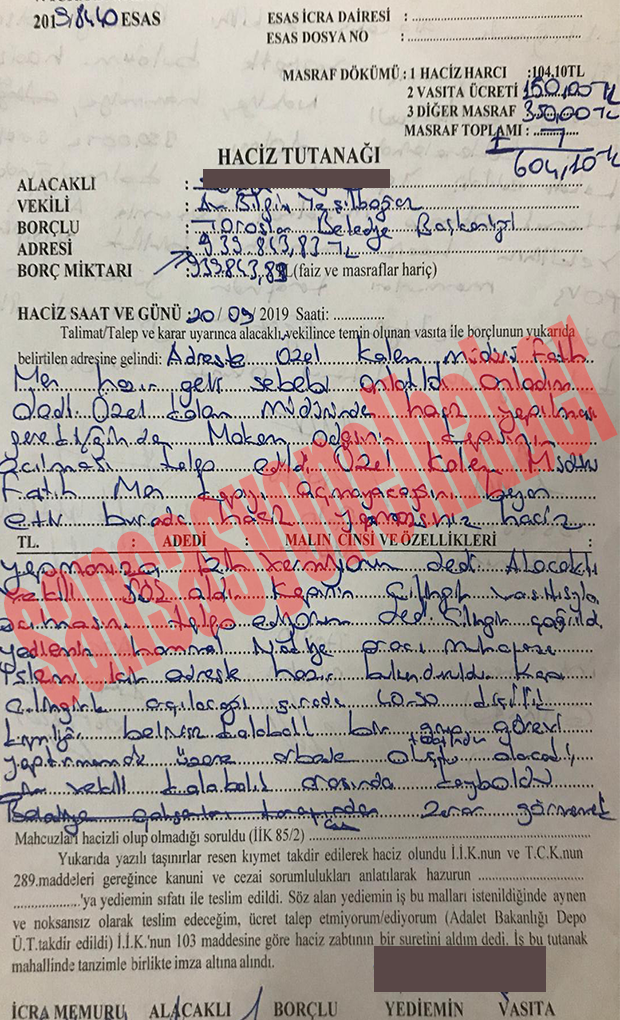 2019/8440 ESAS
ESAS İCRA DAİRESİ :
ESAS DOSYA NO :
MASRAF DÖKÜMÜ : 1 HACİZ HARCI :104,10TL
2 VASITA ÜCRETİ 150,00 TL
3 DİĞER MASRAF 350,00 TL
MASRAF TOPLAMI :
604,10 TL
HACİZ TUTANAĞI
ALACAKLI :
VEKİLİ : Av. Bilgin Yeşilboğaz
BORÇLU : Toroslar Belediye Başkanlığı
ADRESİ : 939.843,83 TL
BORÇ MİKTARI : 939.843,83 (faiz ve masraflar hariç)
HACİZ SAAT VE GÜNÜ : 20/ 09/ 2019 Saati:
Talimat/Talep ve karar uyarınca alacaklı vekilince temin olunan vasıta ile borçlunun yukarıda
belirtilen adresine gelindi: Adreste Özel Kalem Müdürü Fatih
Men hazır geliş sebebi anlatıldı anladım
dedi Özel Kalem müdüründen haciz yapılması
gerektiğinden Makam odasının kapısının
açılması talep edildi Özel Kalem Müdürü
Fatih Men kapıyı açmayacağını beyan
etti burada haciz yapamazsınız haciz
TL. : ADEDİ : MALIN CİNSİ VE ÖZELLİKLERİ :
yapmanıza izin vermiyorum dedi Alacaklı
vekili söz aldı Kapının Çilingir vasıtasıyla
açılmasını talep ediyorum dedi Çilingir çağrıldı
yediemin hammal Nakliye aracı muhafaza
işlemi için adreste hazır bulunduruldu Kapı
Çilingirle açılacağı sırada 40-50 kişilik
kalabalık bir grup görevi
yaptırmamak üzere arbede oluştu alacaklı
vekili kalabalık arasında kayboldu
Belediye çalışanları tarafından zarar görmemek
Mahcuzları hacizli olup olmadığı soruldu (İİK 85/2)
Yukarıda yazılı taşınırlar resen kıymet takdir edilerek haciz olundu İ.İ.K.nun ve T.C.K.nun
289.maddeleri gereğince kanuni ve cezai sorumlulukları anlatılarak hazurun
'ya yediemin sıfatı ile teslim edildi. Söz alan yediemin iş bu malları istenildiğinde aynen
ve noksansız olarak teslim edeceğim, ücret talep etmiyorum/ediyorum (Adalet Bakanlığı Depo
Ü.T.takdir edildi) İ.İ.K.'nun 103 maddesine göre haciz zabtının bir suretini aldım dedi. İş bu tutanak
mahallinde tanzimle birlikte imza altına alındı.
İCRA MEMURU ALACAKLI BORÇLU YEDİEMİN VASITA
sansasyonelhaber